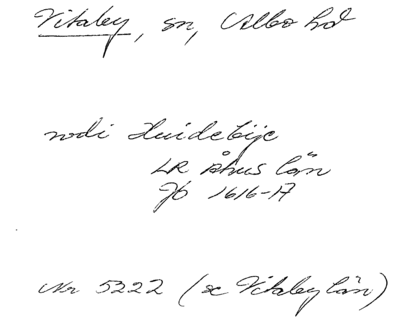 Vitaby, sn, Albo hd
wdi Huidebije
LR Åhus län
Jb 1616-17
Nr 5222 (se Vitaby län)